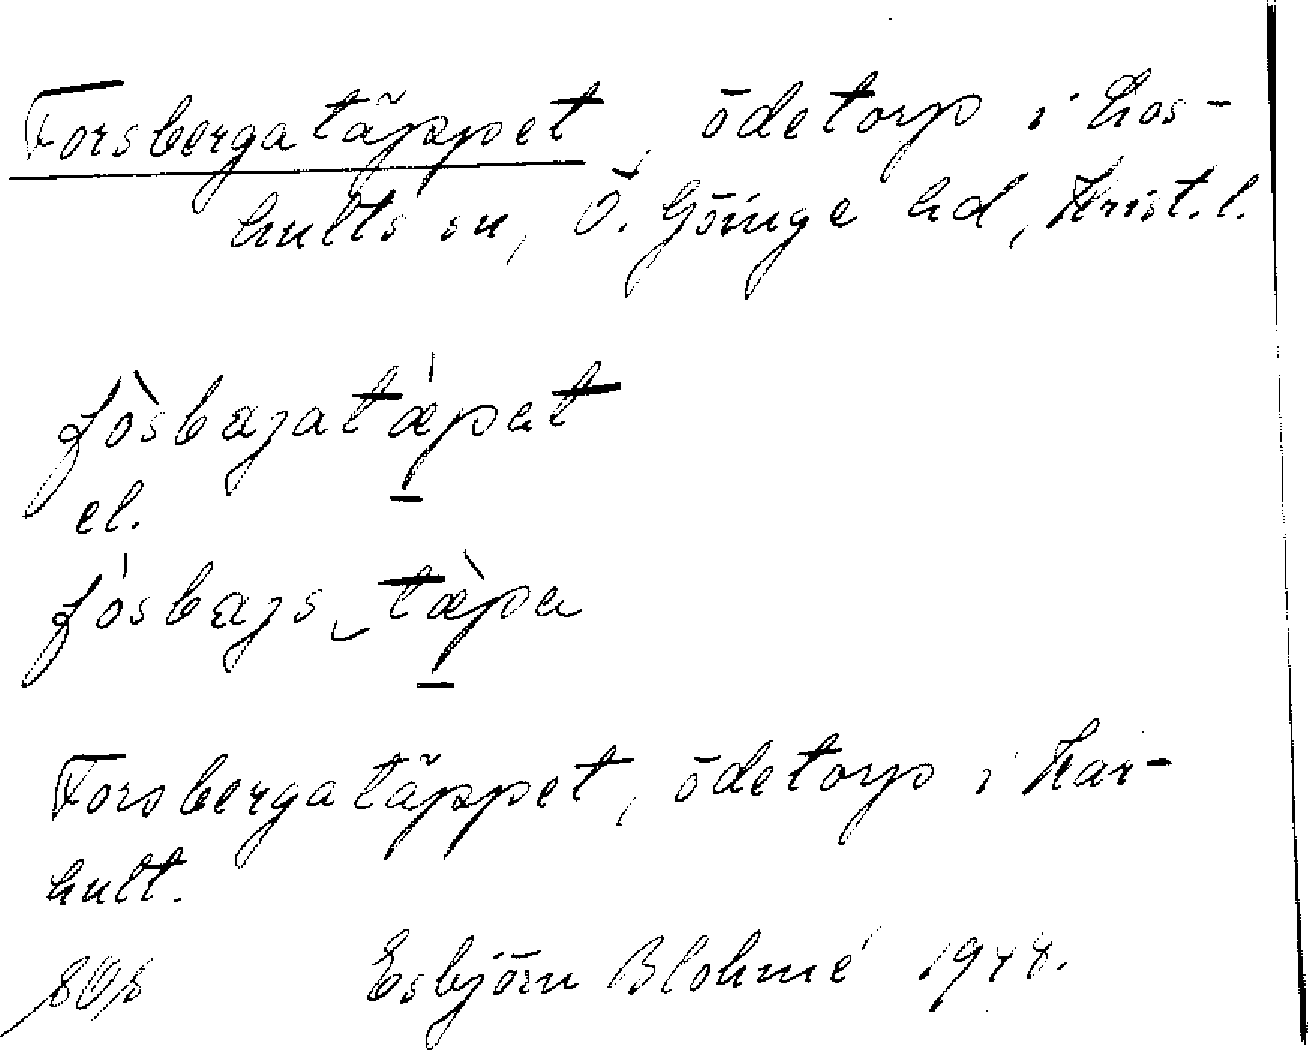 Forsbergatäppet, ödetorp i Los-
hults sn, Ö. Göinge hd, Krist. l.
fòsbæjatǽpat
el.
fósbæjs‿tæ̀pa
Forsbergatäppet, ödetorp i Kar-
hult.
Esbjörn Blohmé 1948.